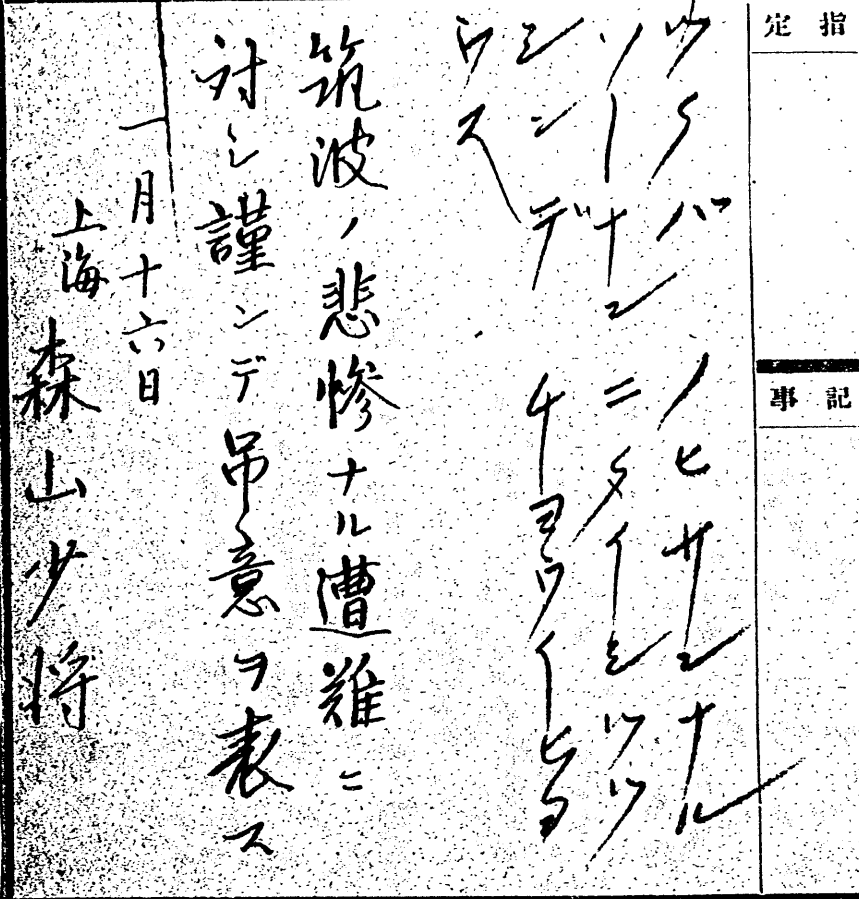 指定
記事
ツクバノヒサンナル
ソーナンニタイシツツ
シンデチヨウイヒヨ
ウス
筑波ノ悲惨ナル遭難ニ
対シ謹ンデ吊意ヲ表ス
一月十六日
上海森山少将